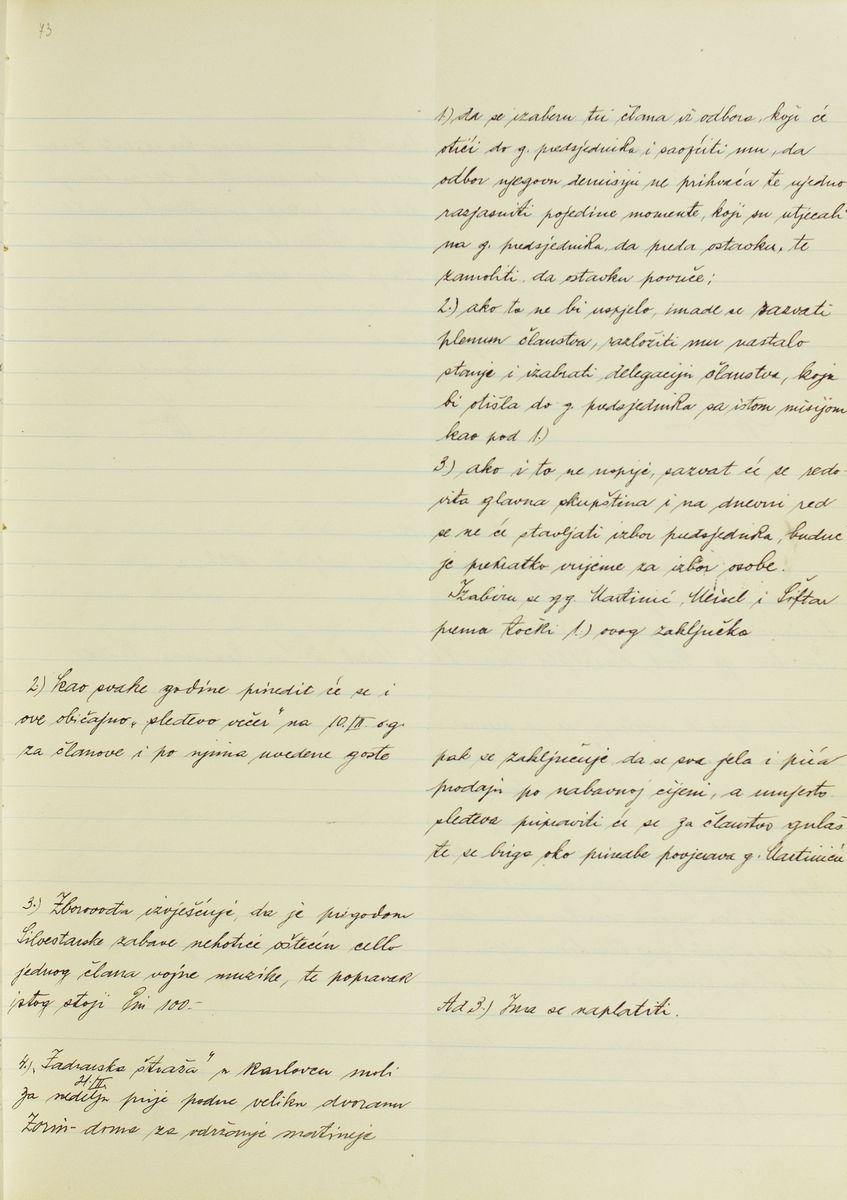 73
1.) da se izaberu tri člana iz odbora, koji će
otići do g. predsjednika i saopćiti mu, da
odbor njegovu demisiju ne prihvaća te ujedno
razjasniti pojedine momente, koji su utjecali
na g. predsjednika, da preda ostavku, te
zamoliti da ostavku povuče;
2.) ako to ne bi uspjelo, imade se sazvati
plenum članstva, razložiti mu nastalo
stanje i izabrati delegaciju članstva, koja
bi otišla do g. predsjednika sa istom misijom
kao pod 1.)
3.) ako i to ne uspije, sazvat će se redo-
vita glavna skupština i na dnevni red
se ne će stavljati izbor predsjednika, buduć
je prekratko vrijeme za izbor osobe.
Izabiru se gg. Martinić, Meisel i Šiftar
prema točki 1.) ovog zaključka
2.) Kao svake godine priredit će se i
ove običajno „sleđevo večer" na 10./II. o.g.
za članove i po njima uvedene goste
pak se zaključuje da se sva jela i pića
prodaju po nabavnoj cijeni, a umjesto
sleđeva pripraviti će se za članstvo gulaš
te se briga oko priredbe povjerava g. Martiniću
3.) Zborovođa izvješćuje, da je prigodom
Silvestarske zabave nehotice oštećen cello
jednog člana vojne muzike, te popravak
istog stoji Din 100.-
Ad 3.) Ima se naplatiti.
4.) „Jadranska straža" u Karlovcu moli
za nedelju prije podne veliku dvoranu
Zorin-doma za održanje matineje